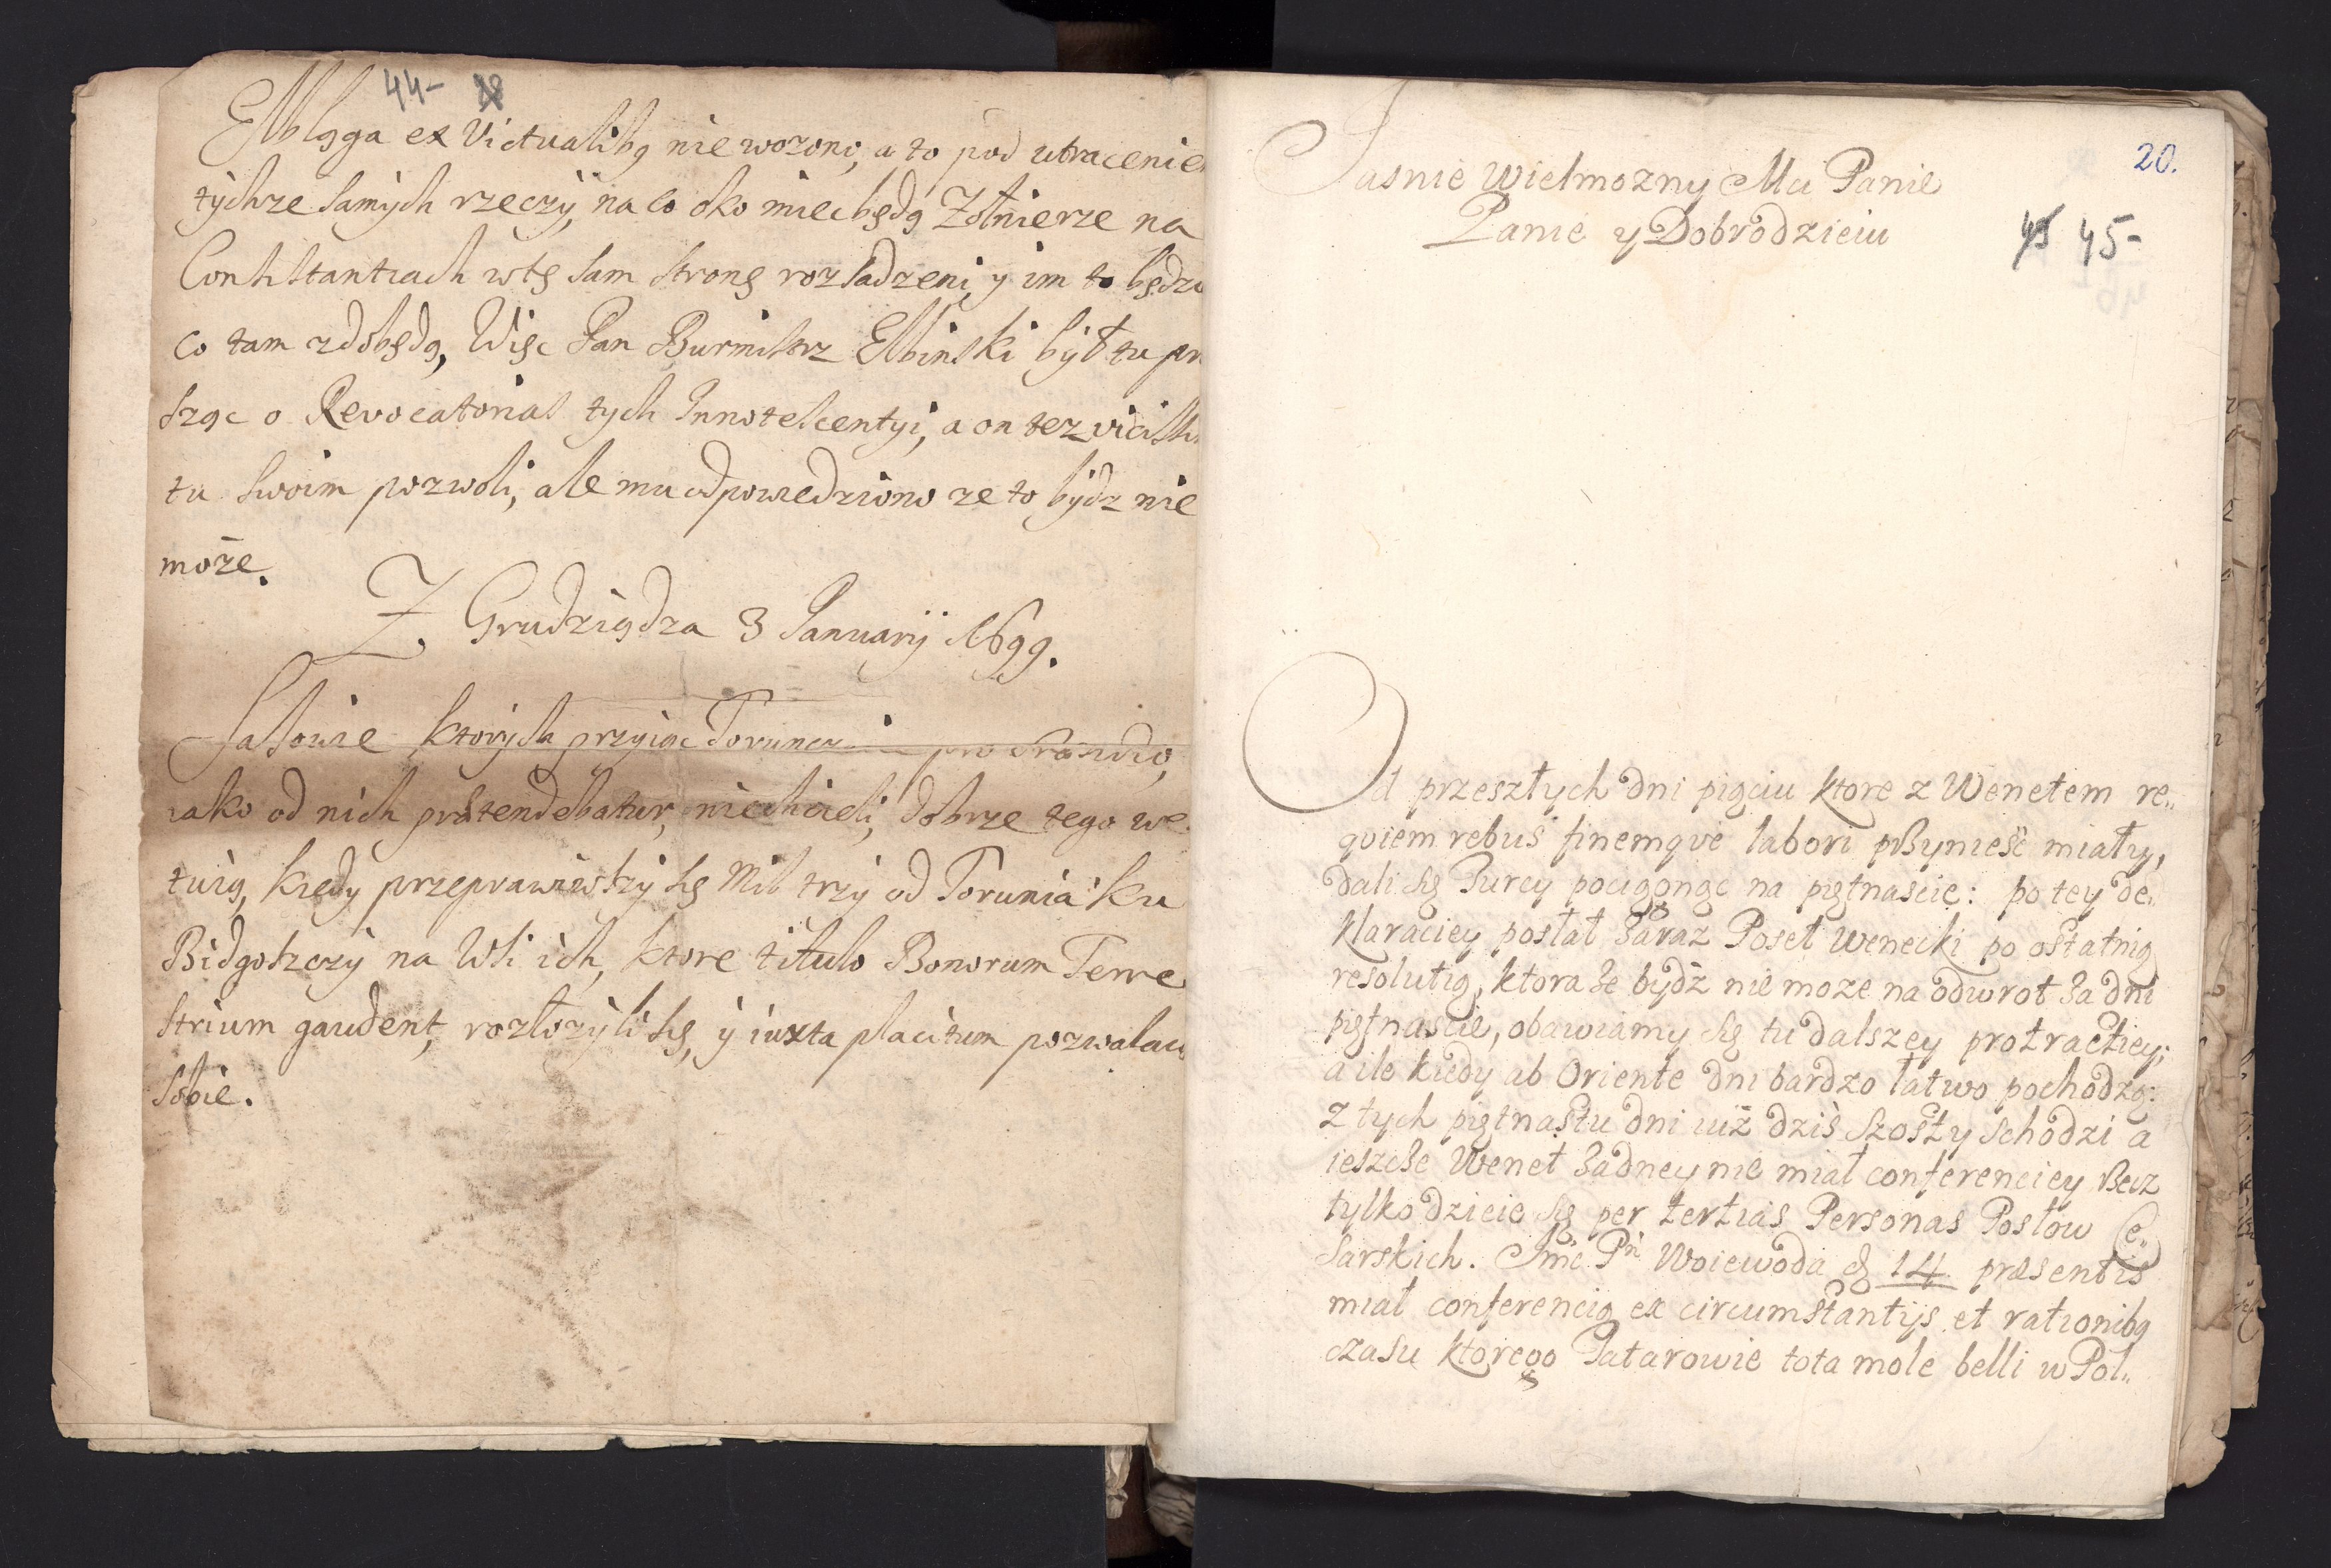 44-
Elbląga ex Victualibq nie wozono, a to pod utracenie
tychze samych rzeczÿ, na co oko miec będą Zołnierze na
Consistantiach w tę sam stronę rozsadzeni, y im to będzie
co tam zdobędą, Więc Pan Burmistrz Elbinski był tu pro
sząc o Revocatorias tych Innotescentyi, a on tez
tu swoim pozwoli, ale mu odpowiedziono ze to bÿdz nie
może.
Z. Grudziądza 3 Januarÿ 1699.
Sasowie ktorych przyiąc Torunczanie pro Præsidio,
iako od nich prætendebatur, niechcieli, dobrze tego we
tuią, kiedy przeprawiwszÿ się Mil trzÿ od Torunia ku
Bidgoszczÿ na Wsi ich, ktore titulo Bonorum Terre
strium gaudent, rozłozÿli się, ÿ iuxta placitum pozwalaią
sobie.
20.
45 45-
Jasnie Wielmozny Mci Panie
Panie y Dobrodzieiu
Od przeszłych dni pięciu ktore z Wenetem re„
qviem rebus finemqve labori przynieść miały,
dali się Turcy pociągonąc na piętnascie: po tey de„
klaraciey posłał zaraz Poseł Wenecki po ostatnią
resolutią, ktora ze bydź nie moze na odwrot za dni
piętnascie, obawiamy się tu dalszey protractiey;
a ile kiedy ab Oriente dni bardzo łatwo pochodzą:
z tych piętnastu dni iuż dziś szosty schodzi a
ieszcze Wenet zadney nie miał conferenciey lecz
tylko dzieie się per tertias Personas Posłow Ce„
sarskich. Jmć Pn Woiewoda d 14 præsentis
miał conferencią ex circumstantijs et rationibq
czasu ktorego Tatarowie tota mole belli w Pol„